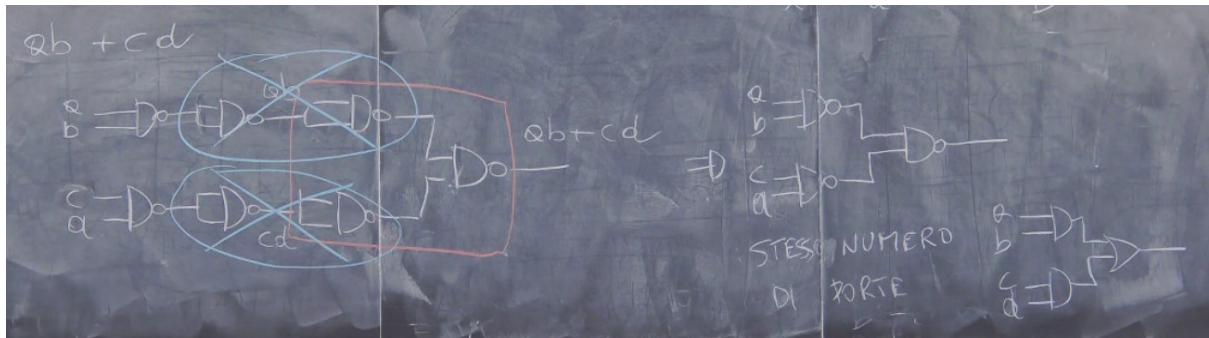 ab + cd
a
b
ab
c
d
cd
ab + cd
a
b
c
d
STESSO NUMERO
DI PORTE
a
b
c
d